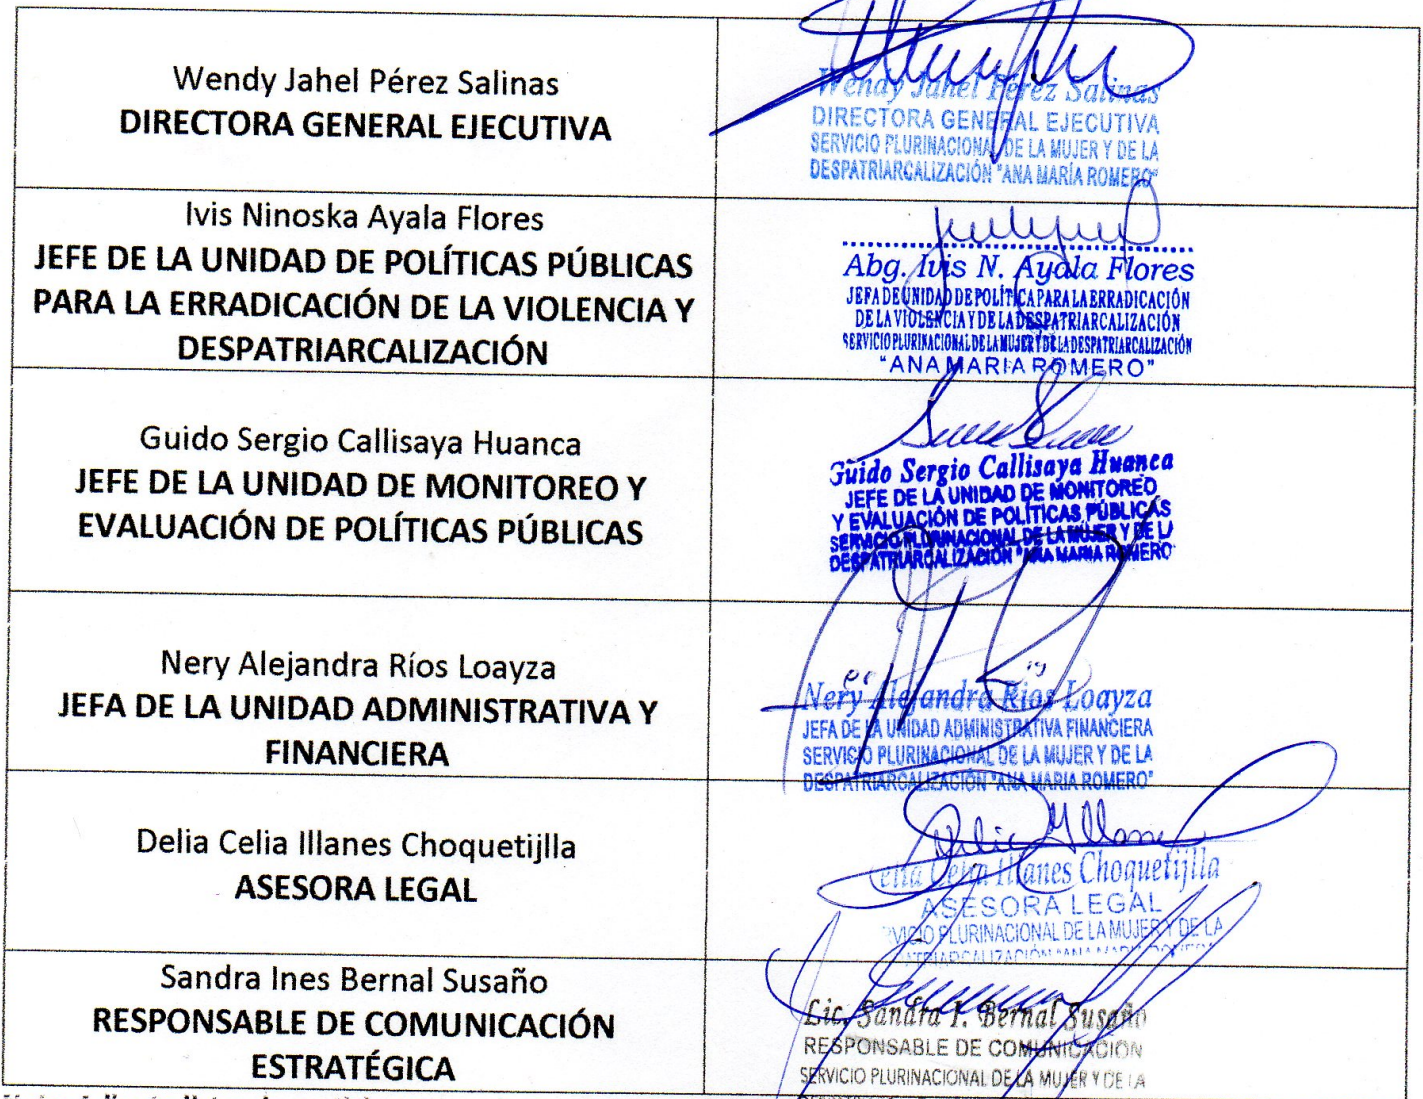 Wendy Jahel Pérez Salinas
DIRECTORA GENERAL EJECUTIVA
Wendy Jahel Pérez Salinas
DIRECTORA GENERAL EJECUTIVA
SERVICIO PLURINACIONAL DE LA MUJER Y DE LA
DESPATRIARCALIZACIÓN "ANA MARÍA ROMERO"
Ivis Ninoska Ayala Flores
JEFE DE LA UNIDAD DE POLÍTICAS PÚBLICAS
PARA LA ERRADICACIÓN DE LA VIOLENCIA Y
DESPATRIARCALIZACIÓN
Abg. Ivis N. Ayala Flores
JEFA DE UNIDAD DE POLÍTICA PARA LA ERRADICACIÓN
DE LA VIOLENCIA Y DE LA DESPATRIARCALIZACIÓN
SERVICIO PLURINACIONAL DE LA MUJER Y DE LA DESPATRIARCALIZACIÓN
"ANA MARIA ROMERO"
Guido Sergio Callisaya Huanca
JEFE DE LA UNIDAD DE MONITOREO Y
EVALUACIÓN DE POLÍTICAS PÚBLICAS
Guido Sergio Callisaya Huanca
JEFE DE LA UNIDAD DE MONITOREO
Y EVALUACIÓN DE POLÍTICAS PÚBLICAS
SERVICIO PLURINACIONAL DE LA MUJER Y DE LA
DESPATRIARCALIZACIÓN "ANA MARIA ROMERO
Nery Alejandra Ríos Loayza
JEFA DE LA UNIDAD ADMINISTRATIVA Y
FINANCIERA
Nery Alejandra Ríos Loayza
JEFA DE LA UNIDAD ADMINISTRATIVA FINANCIERA
SERVICIO PLURINACIONAL DE LA MUJER Y DE LA
DESPATRIARCALIZACIÓN "ANA MARIA ROMERO"
Delia Celia Illanes Choquetijlla
ASESORA LEGAL
Delia Illanes
elia Celia Illanes Choquetijlla
ASESORA LEGAL
VICIO PLURINACIONAL DE LA MUJER Y DE LA
Sandra Ines Bernal Susaño
RESPONSABLE DE COMUNICACIÓN
ESTRATÉGICA
Lic. Sandra I. Bernal Susaño
RESPONSABLE DE COMUNICACIÓN
SERVICIO PLURINACIONAL DE LA MUJER Y DE LA